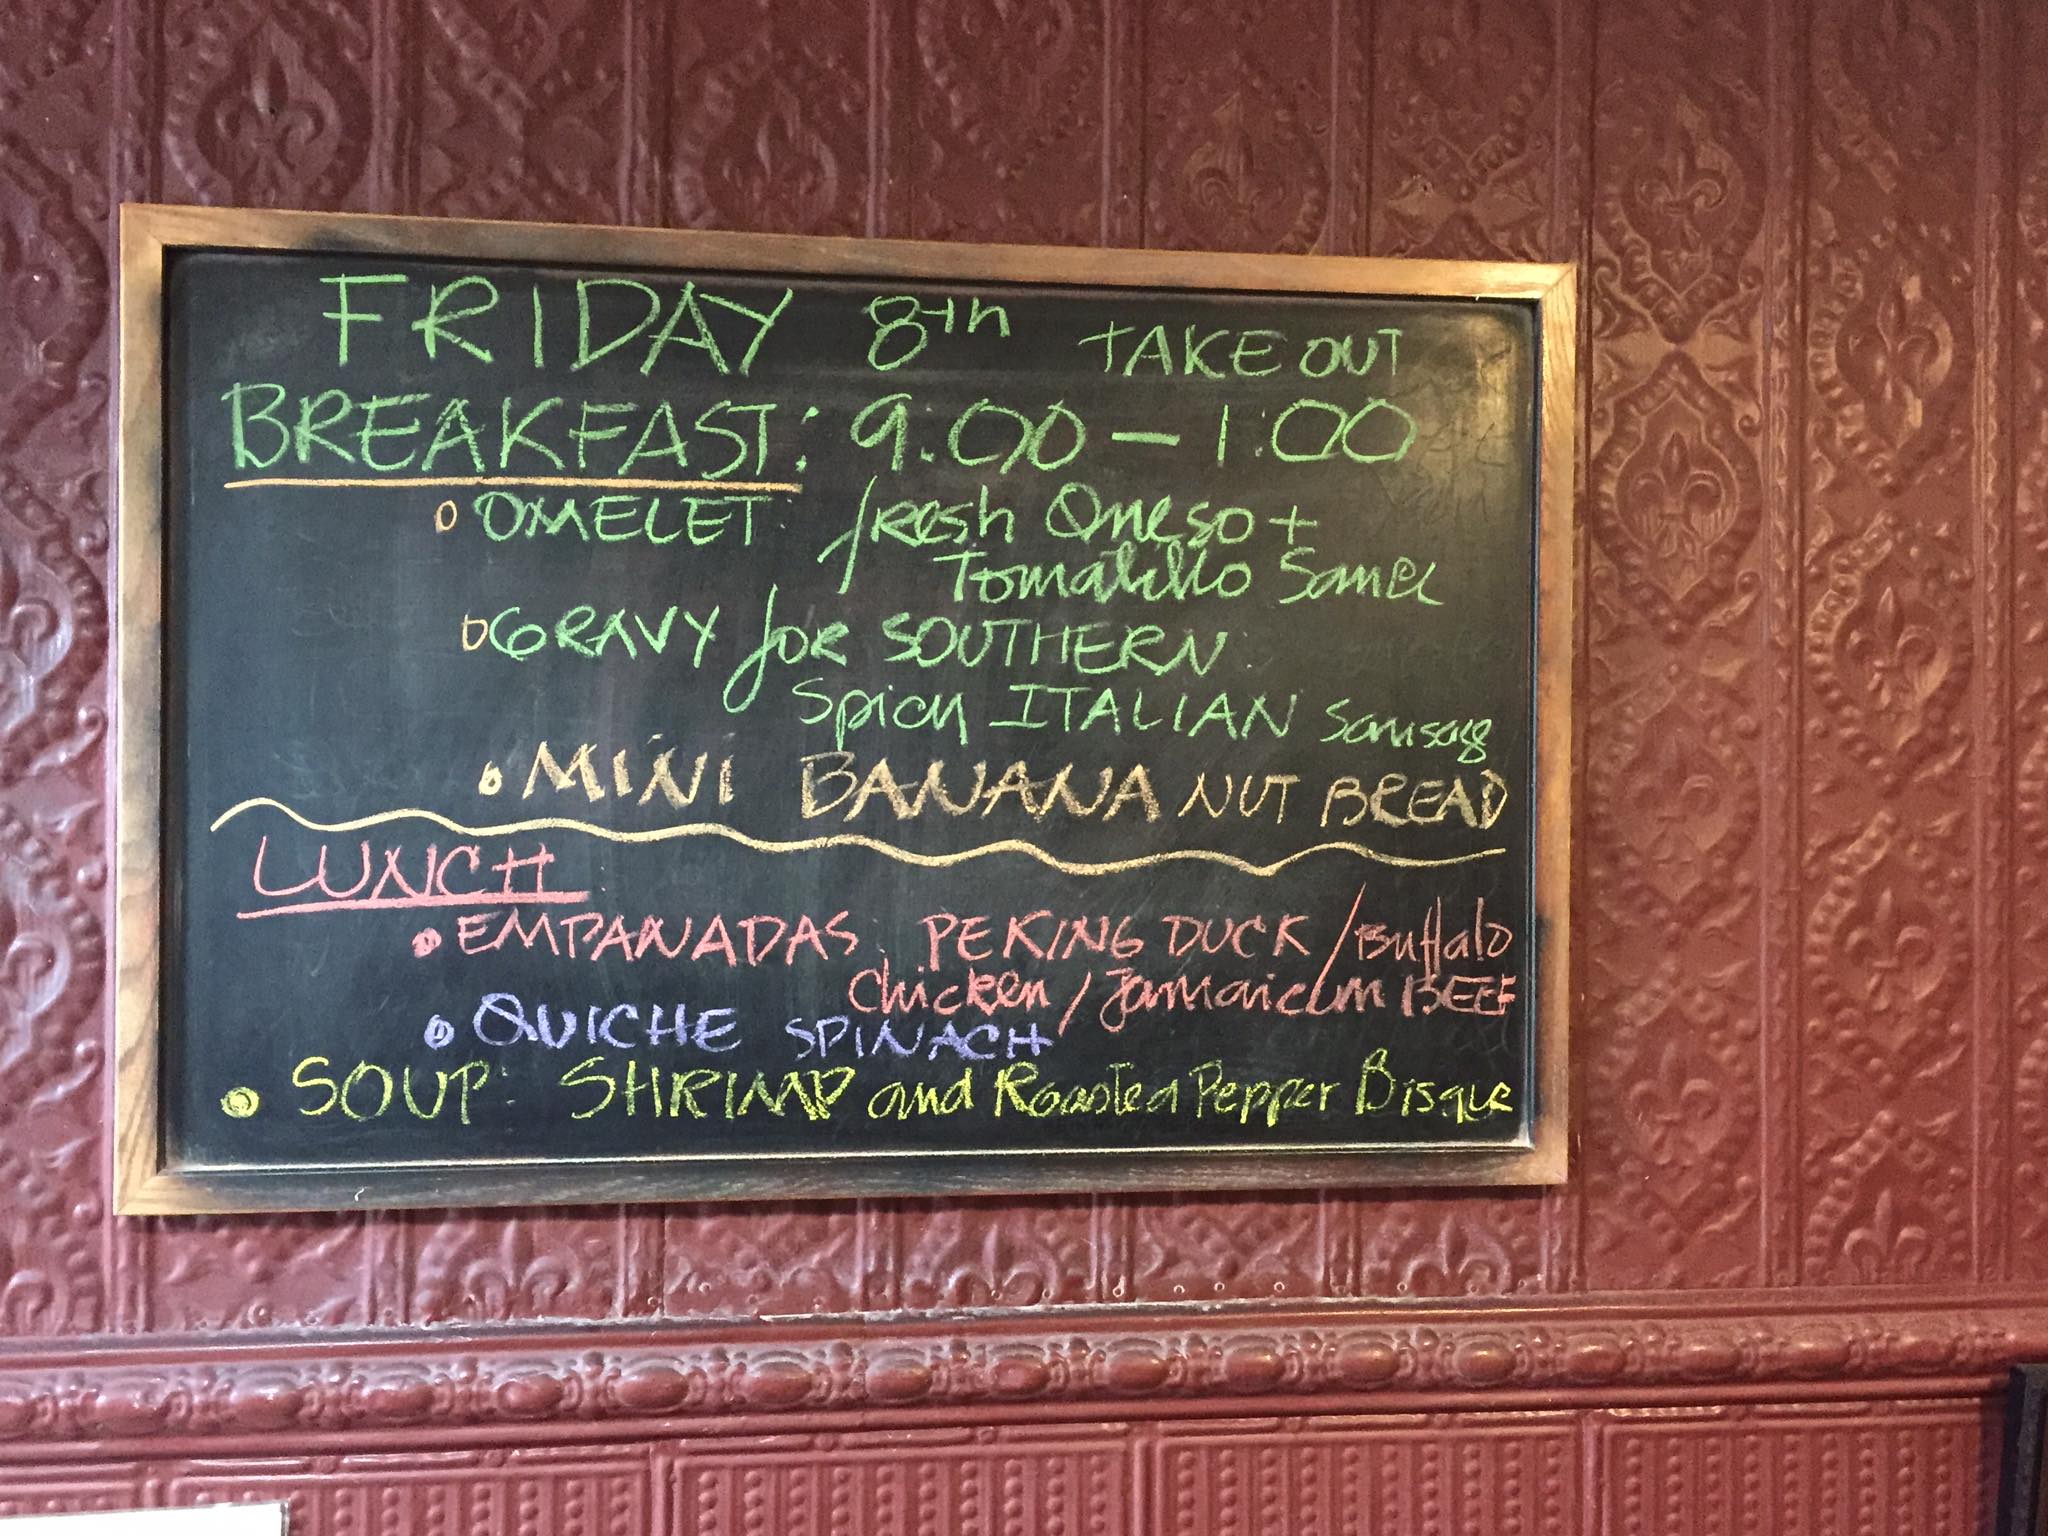 FRIDAY 8th TAKE OUT
BREAKFAST: 9:00 – 1:00
OMELET: fresh Queso +
Tomatillo Sauce
GRAVY for SOUTHERN
Spicy ITALIAN Sausag
MINI BANANA NUT BREAD
LUNCH
EMPANADAS: PEKING DUCK / Buffalo
Chicken / Jamaican BEEF
QUICHE SPINACH
SOUP: SHRIMP and Roasted Pepper Bisque